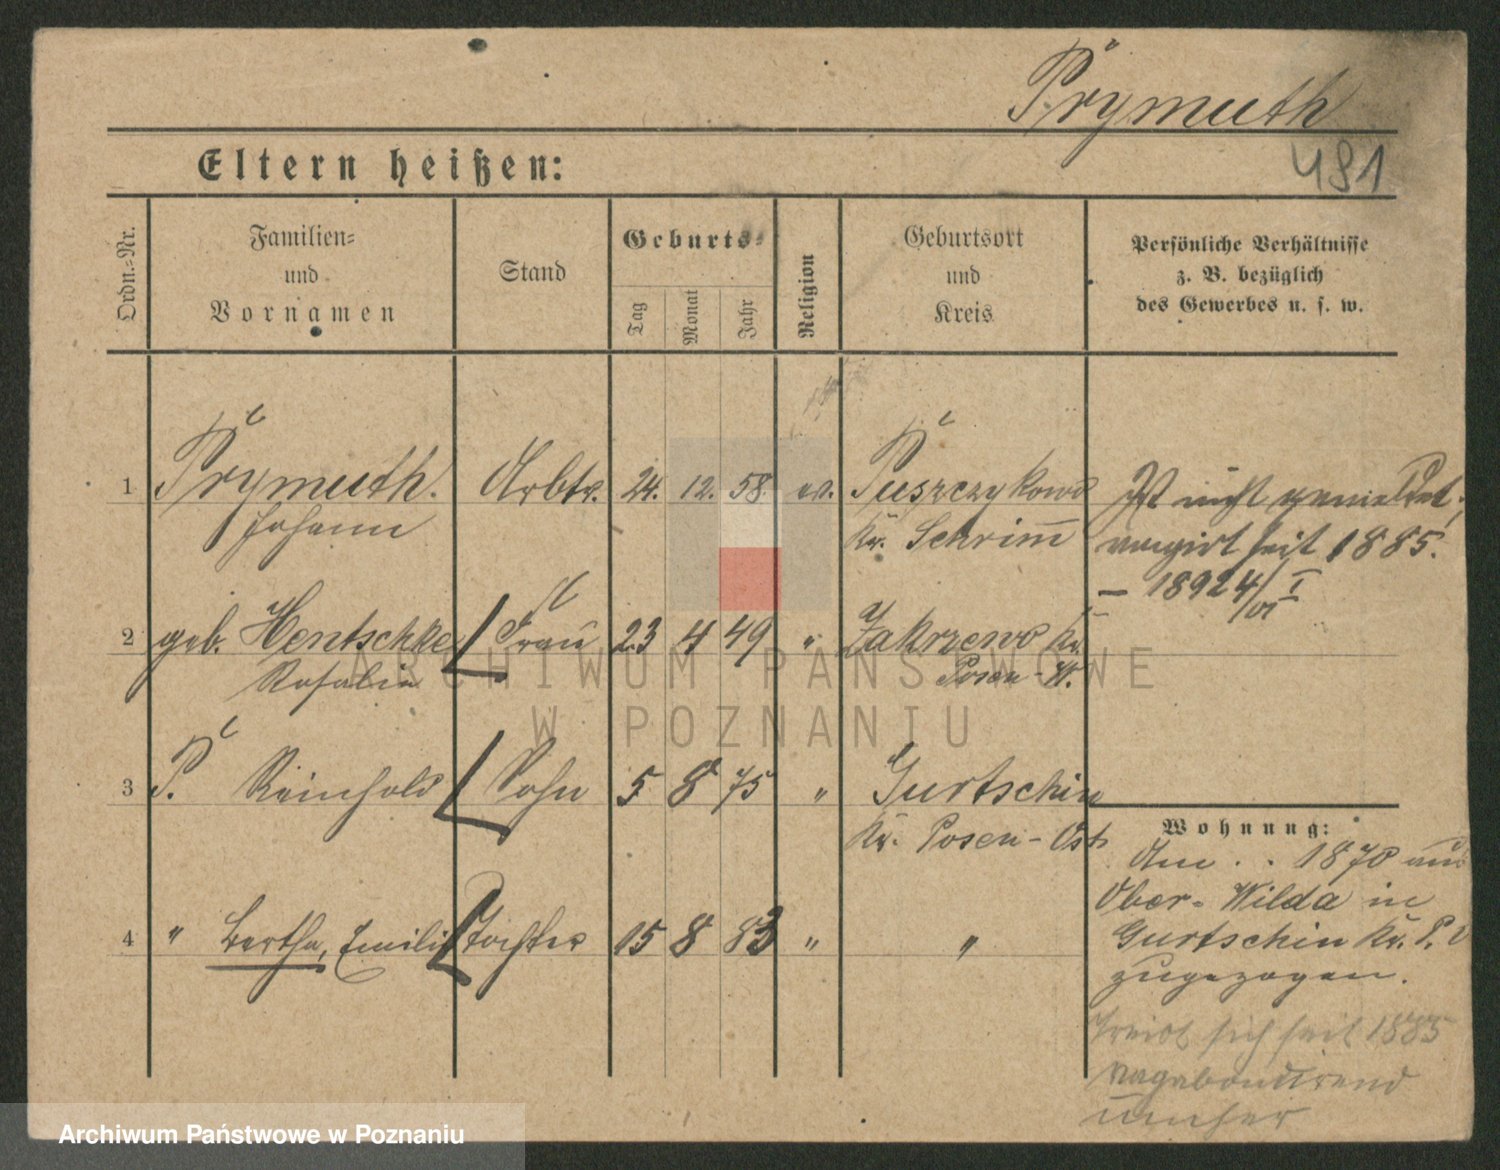 Prymuth
491
Eltern heißen:
Ordn.-Nr.
Familien-
und
Vornamen
Stand
Geburts-
Tag
Monat
Jahr
Religion
Geburtsort
und
Kreis
Persönliche Verhältnisse
z. B. bezüglich
des Gewerbes u. s. w.
1 Prymuth. Arbtr. 24. 12. 58. ev. Puszczykowo
Johann Kr. Schrimm
Ist nicht gemeldet,
seit 1885.
– 1892 4/VI I
2 geb. Hentschke Frau 23 4 49 " Zakrzewo Kr.
Rosalie Posen-W.
3 P. Reinhold Sohn 5 8 75 " Gurtschin
Kr. Posen-Ost
4 " Bertha, Emilie Tochter 15 8 83 " "
Wohnung:
Am . . 1870 aus
Ober-Wilda in
Gurtschin Kr. P. O
zugezogen.
Treibt sich seit 1885
vagabondirend
umher
ARCHIWUM PAŃSTWOWE
W POZNANIU
Archiwum Państwowe w Poznaniu